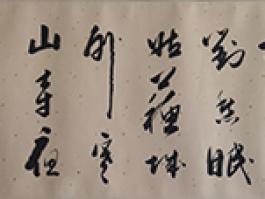 對愁眠
姑蘇城
外寒
山寺夜